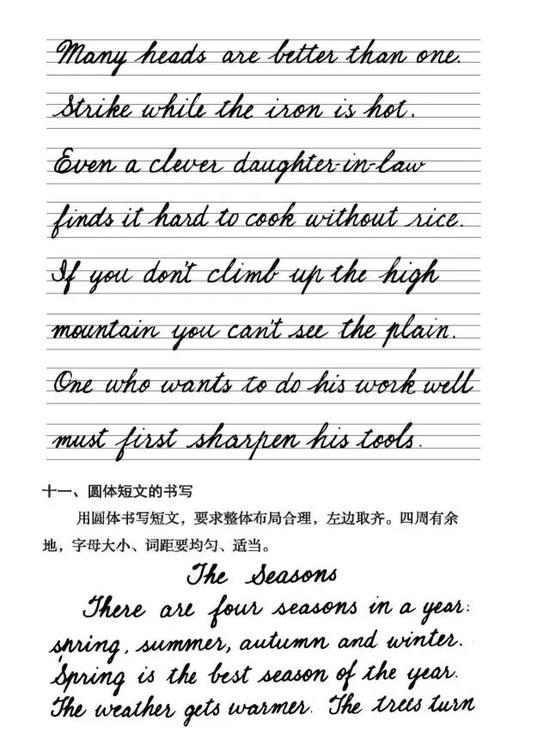 Many heads are better than one.
Strike while the iron is hot.
Even a clever daughter-in-law
finds it hard to cook without rice.
If you don't climb up the high
mountain you can't see the plain.
One who wants to do his work well
must first sharpen his tools.
十一、圆体短文的书写
用圆体书写短文，要求整体布局合理，左边取齐。四周有余
地，字母大小、词距要均匀、适当。
The Seasons
There are four seasons in a year:
spring, summer, autumn and winter.
Spring is the best season of the year.
The weather gets warmer. The trees turn